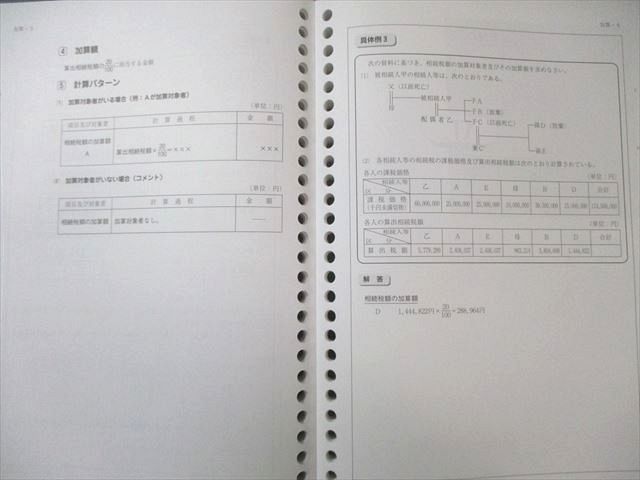 加算－3
4 加算額
算出相続税額の20/100に相当する金額
5 計算パターン
(1) 加算対象者がいる場合（例：Aが加算対象者）
（単位：円）
項目及び対象者 計算過程 金額
相続税額の加算額 A 算出相続税額×20/100＝××× ×××
(2) 加算対象者がいない場合（コメント）
（単位：円）
項目及び対象者 計算過程 金額
相続税額の加算額 加算対象者なし。 ――
加算－4
具体例3
次の資料に基づき、相続税額の加算対象者及びその加算額を求めなさい。
(1) 被相続人甲の相続人等は、次のとおりである。
父（以前死亡）
被相続人甲
母
配偶者乙
子A
子B（放棄）
子C（以前死亡）
妻C'
孫D（放棄）
孫E
(2) 各相続人等の相続税の課税価格及び算出相続税額は次のとおり計算されている。
各人の課税価格
（単位：円）
相続人等 区分 乙 A E 母 B D 合計
課税価格（千円未満切捨） 60,000,000 25,000,000 25,000,000 10,000,000
各人の算出相続税額
（単位：円）
相続人等 区分 乙 A E 母 B D 合計
算出税額 1,444,822
解答
相続税額の加算額
D 1,444,822円×20/100＝288,964円